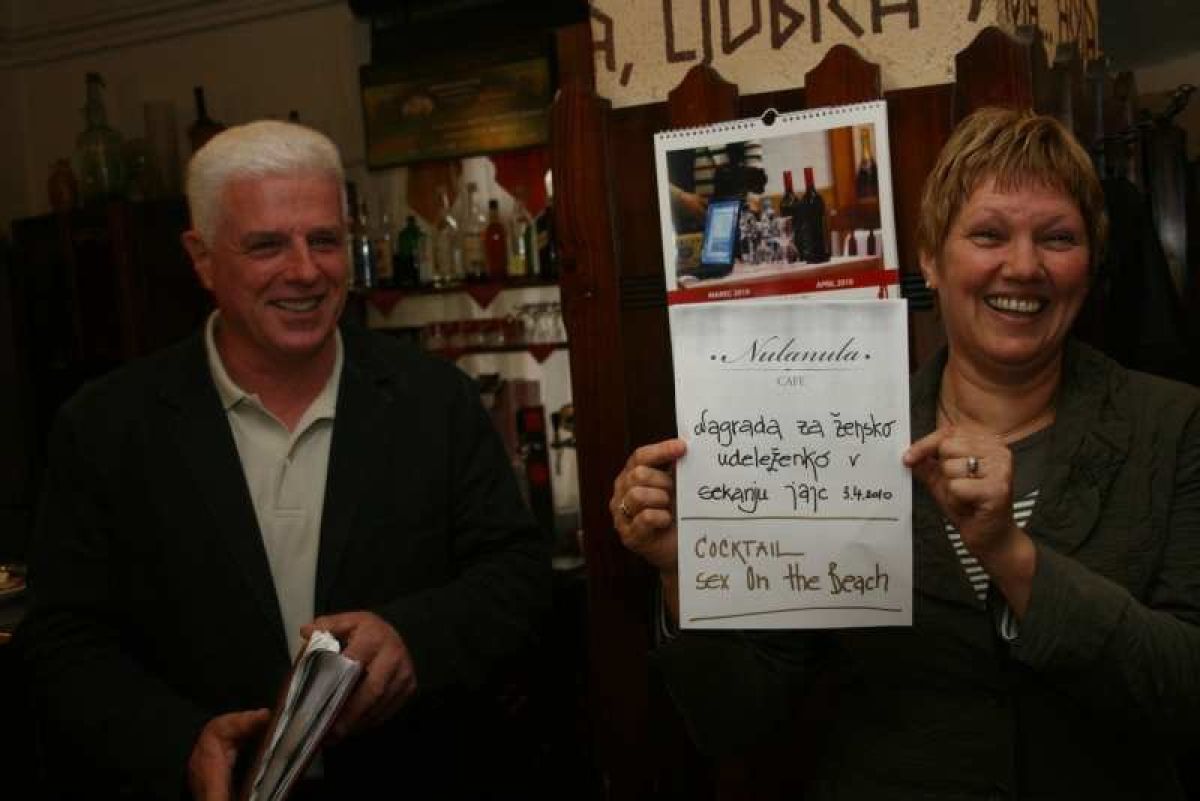 A, LJUBČA
MAREC 2010 APRIL 2010
Nulanula
CAFE
Nagrada za žensko
udeleženko v
sekanju jajc 3.4.2010
COCKTAIL
Sex On the Beach